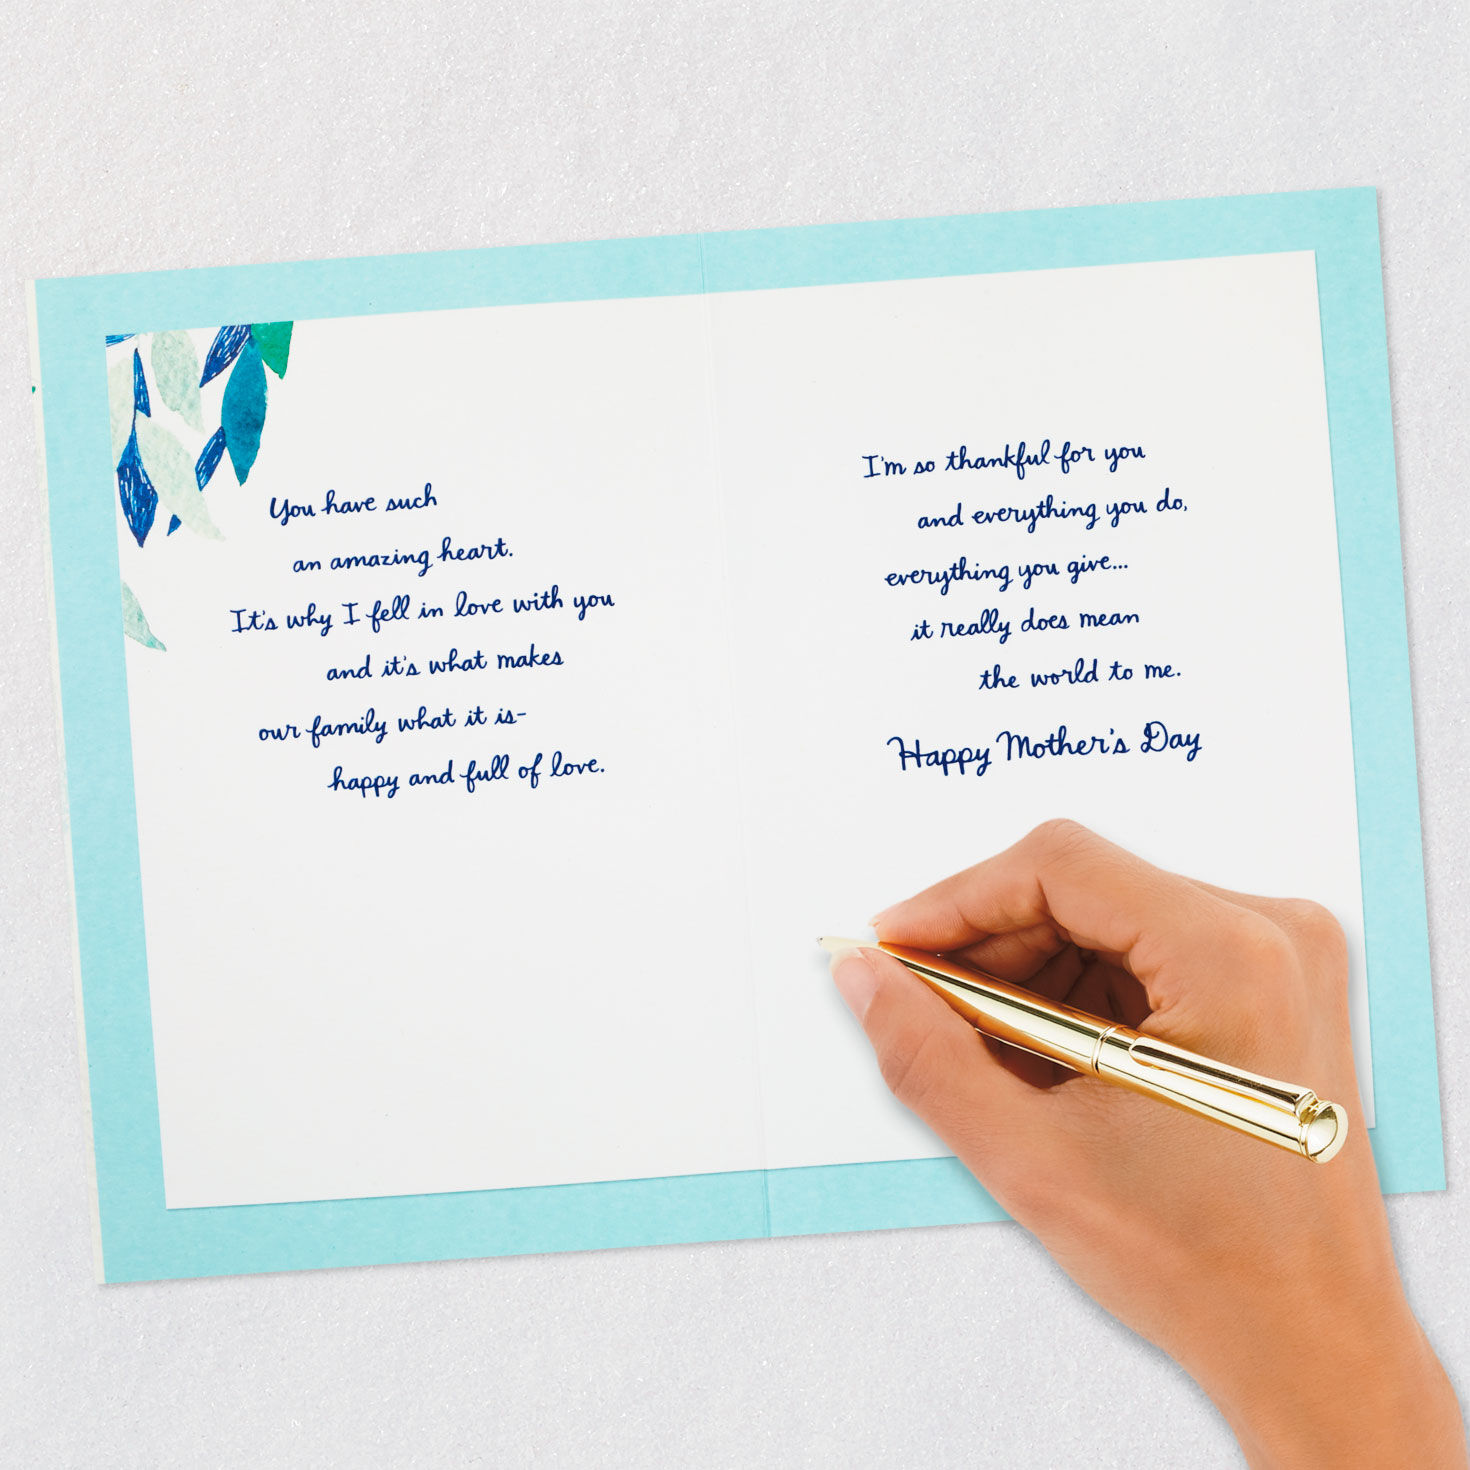 You have such
an amazing heart.
It's why I fell in love with you
and it's what makes
our family what it is-
happy and full of love.
I'm so thankful for you
and everything you do,
everything you give...
it really does mean
the world to me.
Happy Mother's Day